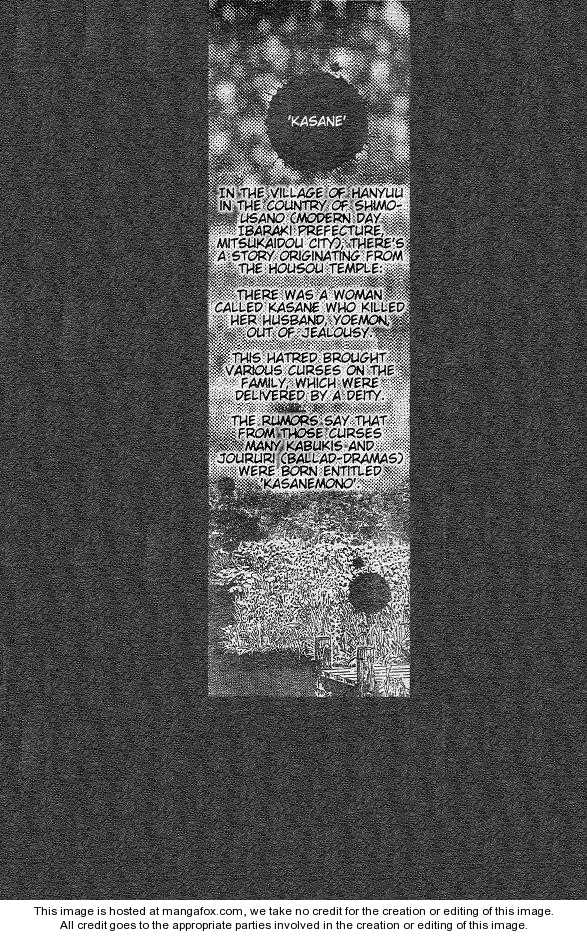 'KASANE'
IN THE VILLAGE OF HANYUU
IN THE COUNTRY OF SHIMO-
USANO (MODERN DAY
IBARAKI PREFECTURE,
MITSUKAIDOU CITY), THERE'S
A STORY ORIGINATING FROM
THE HOUSOU TEMPLE:
THERE WAS A WOMAN
CALLED KASANE WHO KILLED
HER HUSBAND, YOEMON,
OUT OF JEALOUSY.
THIS HATRED BROUGHT
VARIOUS CURSES ON THE
FAMILY, WHICH WERE
DELIVERED BY A DEITY.
THE RUMORS SAY THAT
FROM THOSE CURSES
MANY KABUKIS AND
JOURURI (BALLAD-DRAMAS)
WERE BORN ENTITLED
'KASANEMONO'.
This image is hosted at mangafox.com, we take no credit for the creation or editing of this image.
All credit goes to the appropriate parties involved in the creation or editing of this image.